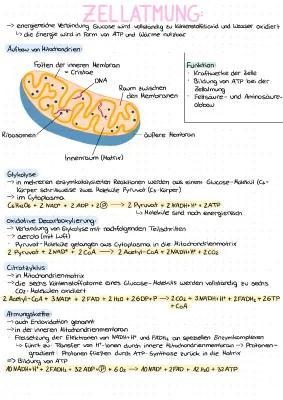 ZELLATMUNG:
→ energiereiche Verbindung Glucose wird vollständig zu Kohlenstoffdioxid und Wasser oxidiert
↳ die Energie wird in Form von ATP und Wärme nutzbar
Aufbau von Mitochondrien:
Falten der inneren Membran
= Cristae
DNA
Raum zwischen
den Membranen
Ribosomen
äußere Membran
Innenraum (Matrix)
Funktion:
· Kraftwerke der Zelle
· Bildung von ATP bei der
Zellatmung
· Fettsäure- und Aminosäure-
abbau
Glykolyse
→ in mehreren enzymkatalysierten Reaktionen werden aus einem Glucose-Molekül (C6-
Körper) schrittweise zwei Moleküle Pyruvat (C3-Körper)
→ im Cytoplasma
C6H12O6 + 2 NAD⁺ + 2 ADP + 2 P → 2 Pyruvat + 2 NADH+H⁺ + 2 ATP
↳ Moleküle sind noch energiereich
oxidative Decarboxylierung:
→ Verbindung von Glykolyse mit nachfolgenden Teilschritten
→ aerob (mit Luft)
· Pyruvat-Moleküle gelangen aus Cytoplasma in die Mitochondrienmatrix
2 Pyruvat + 2 NAD⁺ + 2 CoA → 2 Acetyl-CoA + 2 NADH+H⁺ + 2 CO2
Citratzyklus:
→ in Mitochondrienmatrix
→ die sechs Kohlenstoffatome eines Glucose-Moleküls werden vollständig zu sechs
CO2-Molekülen oxidiert
2 Acetyl-CoA + NAD⁺ + 2 FAD + 2 H2O + 2 GDP + P → 2 CO2 + NADH+H⁺ + 2 FADH2 + 2 GTP
+ CoA
Atmungskette:
→ auch Endoxidation genannt
→ in der inneren Mitochondrienmembran
· Freisetzung der Elektronen von NADH+H⁺ und FADH2 an speziellen Enzymkomplexen
↳ führt zu: Transfer von H⁺-Ionen durch innere Mitochondrienmembran → Protonen-
gradient · Protonen fließen durch ATP-Synthase zurück in die Matrix
⇒ Bildung von ATP
10 NADH+H⁺ + 2 FADH2 + 32 ADP + P + 6 O2 → 10 NAD⁺ + 2 FAD + 12 H2O + 32 ATP